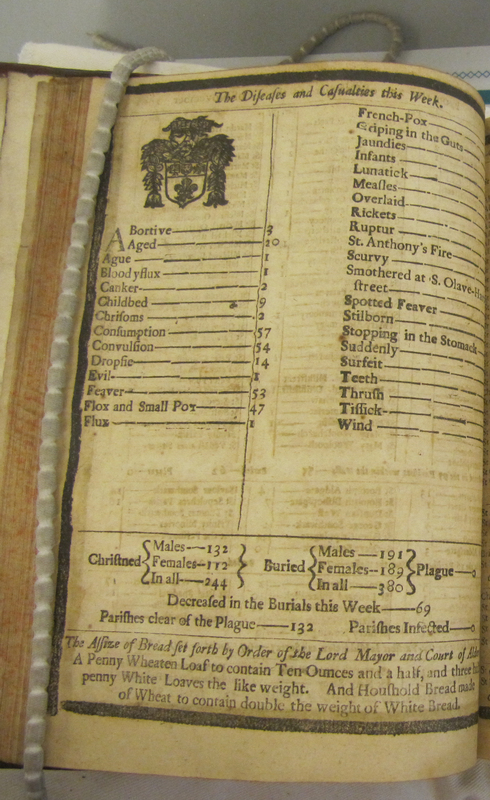 The Diſeaſes and Caſualties this Week.
ABortive 3
Aged 20
Ague 1
Bloodyflux 1
Canker 2
Childbed 9
Chriſoms 2
Conſumption 57
Convulſion 54
Dropſie 14
Evil 1
Feaver 53
Flox and Small Pox 47
Flux 1
French-Pox
Griping in the Guts
Jaundies
Infants
Lunatick
Meaſles
Overlaid
Rickets
Ruptur
St. Anthony's Fire
Scurvy
Smothered at S. Olave-
ſtreet
Spotted Feaver
Stilborn
Stopping in the Stomack
Suddenly
Surfeit
Teeth
Thruſh
Tiſſick
Wind
Chriſtned { Males 132 Females 112 In all 244 }
Buried { Males 191 Females 189 In all 380 } Plague 0
Decreaſed in the Burials this Week 69
Pariſhes clear of the Plague 132 Pariſhes Infected 0
The Aſſize of Bread ſet forth by Order of the Lord Mayor and Court of
A Penny Wheaten Loaf to contain Ten Ounces and a half, and three
penny White Loaves the like weight. And Houſhold Bread made
of Wheat to contain double the weight of White Bread.